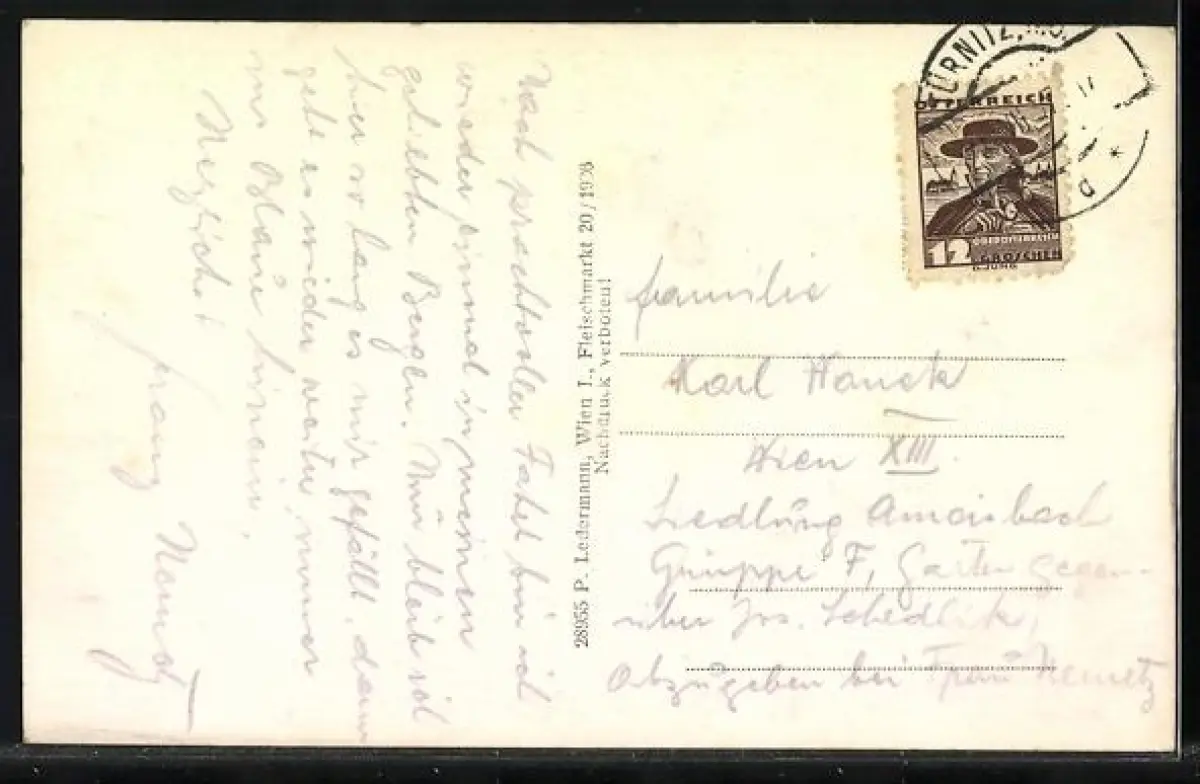 Nach prachtvoller Fahrt bin ich
wieder einmal in meinen
geliebten Bergen. Nun bleib ich
hier so lang es mir gefällt, dann
geht es wieder weiter, immer
ins Blaue hinein.
Herzlichst
Franz Nemetz
28955 P. Ledermann, Wien I., Fleischmarkt 20/1936
Nachdruck verboten!
TÜRNITZ, N.Ö.
a *
ÖSTERREICH
12 GROSCHEN
OBERÖSTERREICH
D. JUNG
Familie
Karl Hauck
Wien XIII.
Siedlung Ameisbach
Gruppe F, Garten gegen-
über Jos. Schedlik,
Abzugeben bei Frau Nemetz